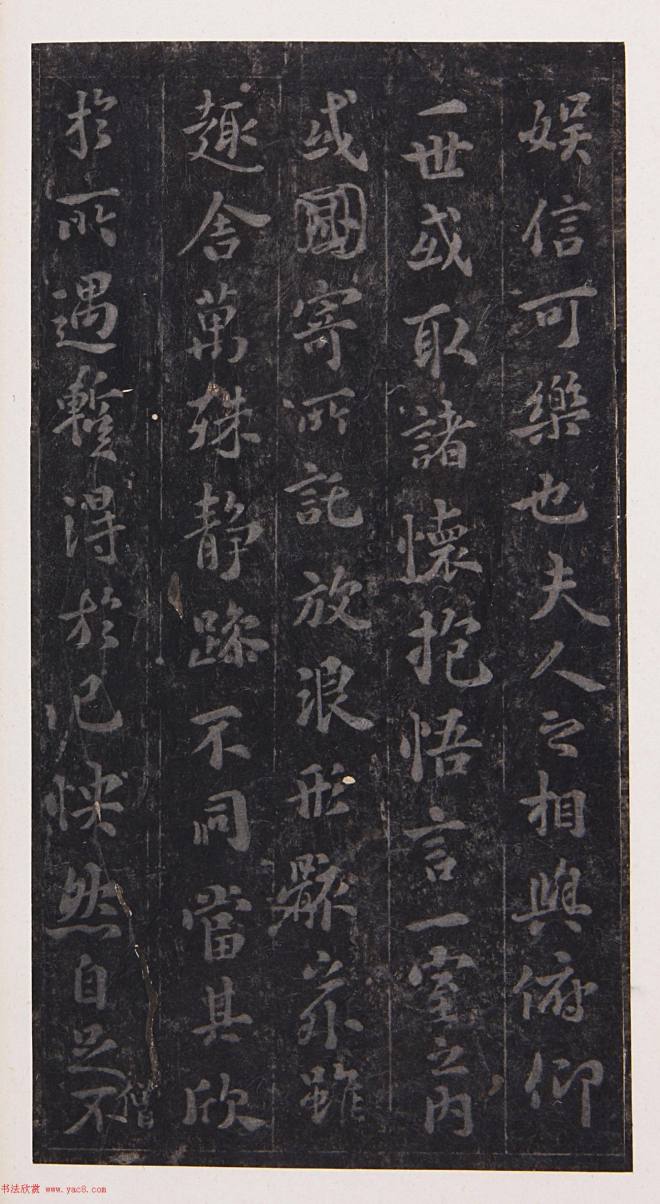 娛信可樂也夫人之相與俯仰
一世或取諸懷抱悟言一室之內
或因寄所託放浪形骸之外雖
趣舍萬殊静躁不同當其欣
於所遇暫得於己怏然自足不
僧
书法欣赏 www.yac8.com